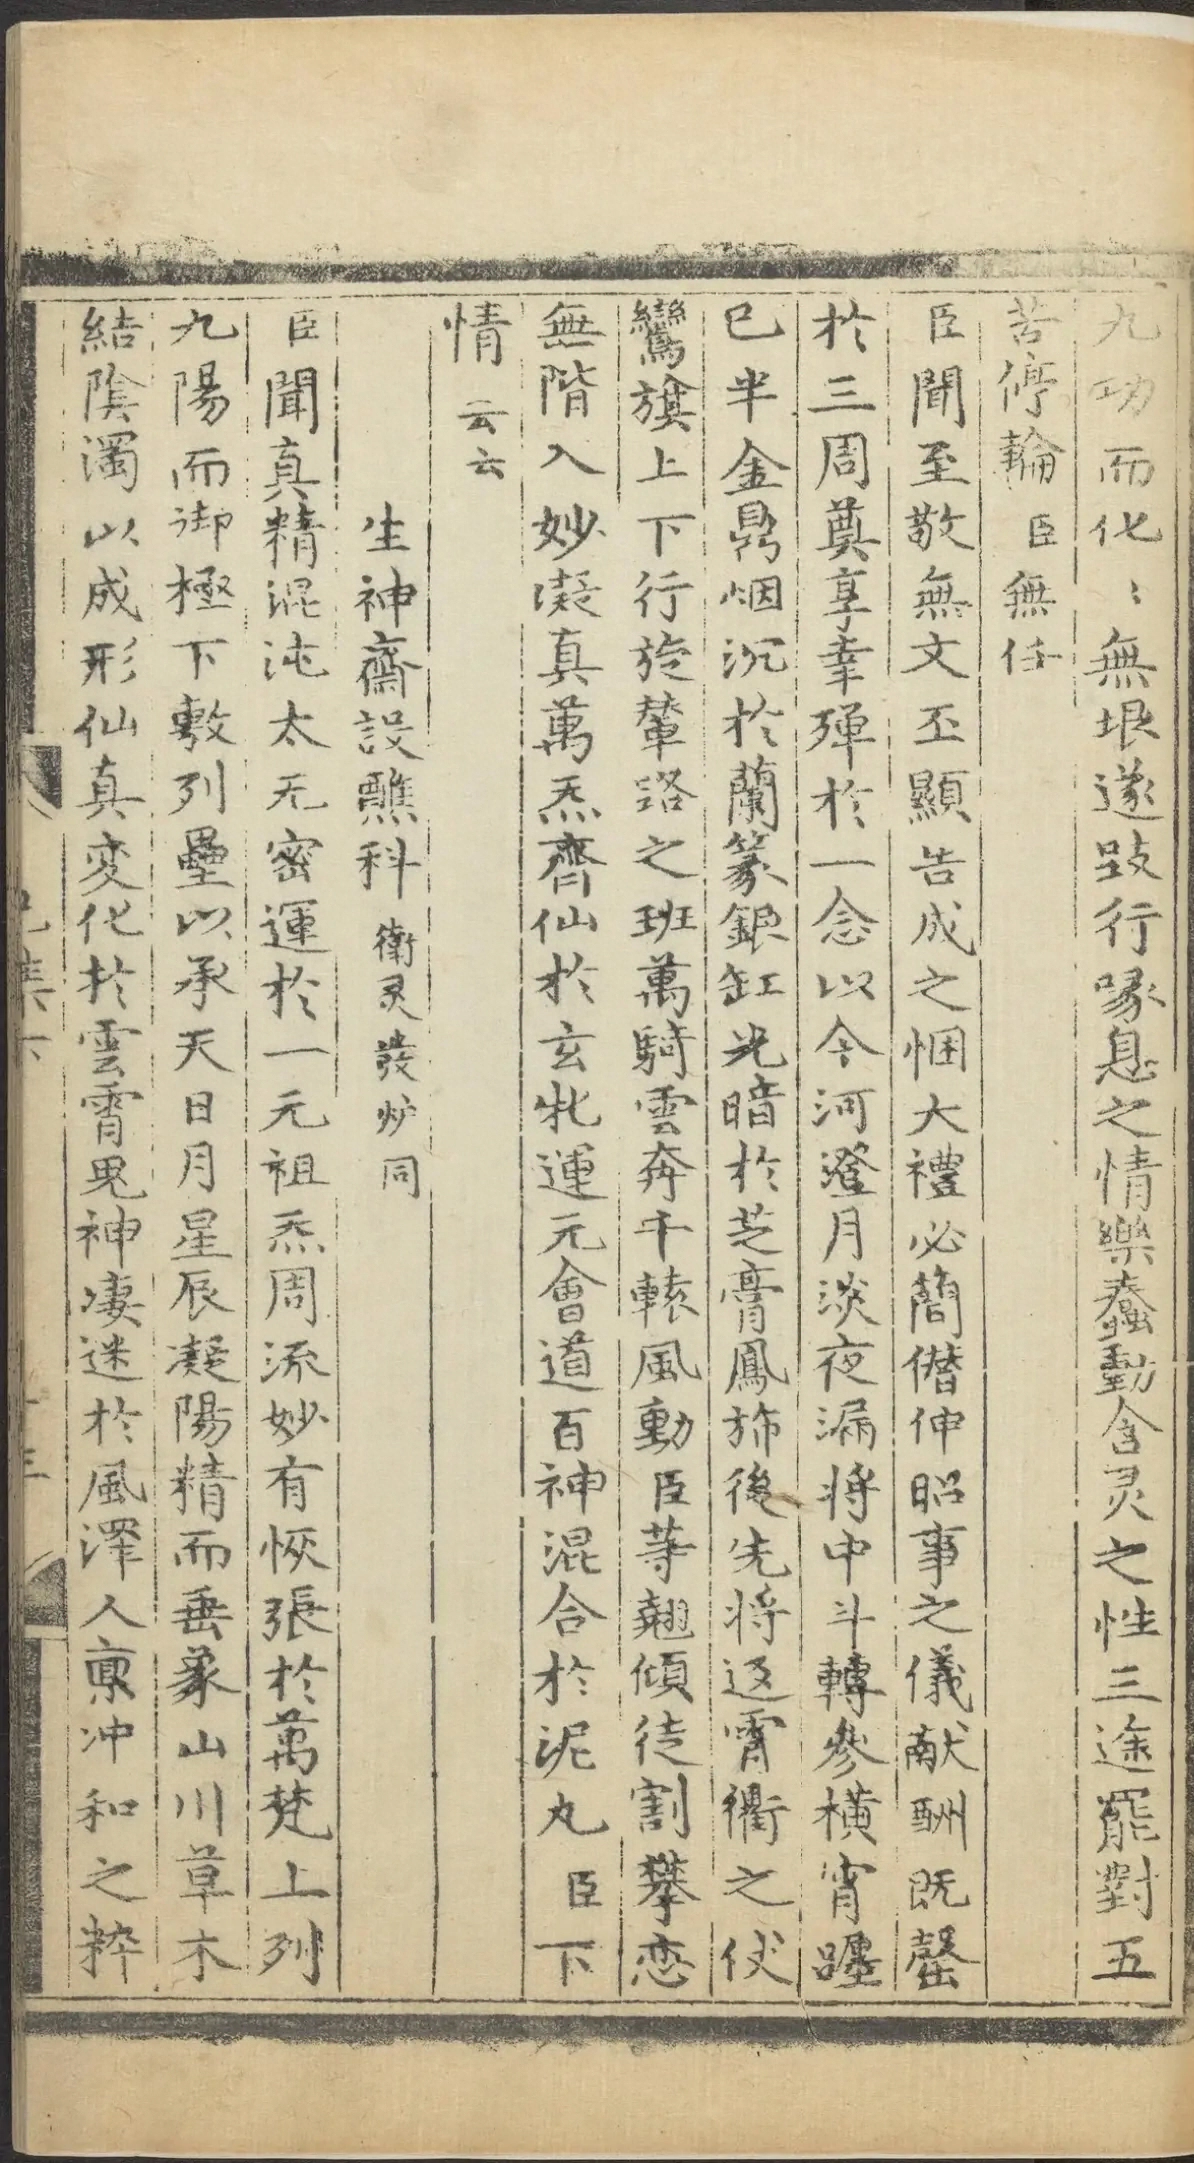 九功而化〻無垠遂跂行喙息之情樂蠢動含灵之性三途罷對五
苦停輪 臣 無任
臣聞至敬無文丕顯告成之悃大禮必蕳僭伸昭事之儀献酬既罄
於三周奠享幸殫於一念以今河澄月淡夜漏将中斗轉參橫宵躔
已半金鼎烟沉於蘭篆銀缸光暗於芝膏鳳旆後先将返霄衢之伏
鸞旗上下行旋輦路之班萬騎雲奔千轅風動臣等翹傾徒割攀恋
無階入妙凝真萬炁齊仙於玄牝運元會道百神混合於泥丸臣下
情 云云
生神齋設醮科 衛灵發炉同
臣聞真精混沌太无密運於一元祖炁周流妙有恢張於萬梵上列
九陽而御極下敷列壘以承天日月星辰凝陽精而垂象山川草木
結陰濁以成形仙真变化於雲霄鬼神凄迷於風澤人稟冲和之粹
集下